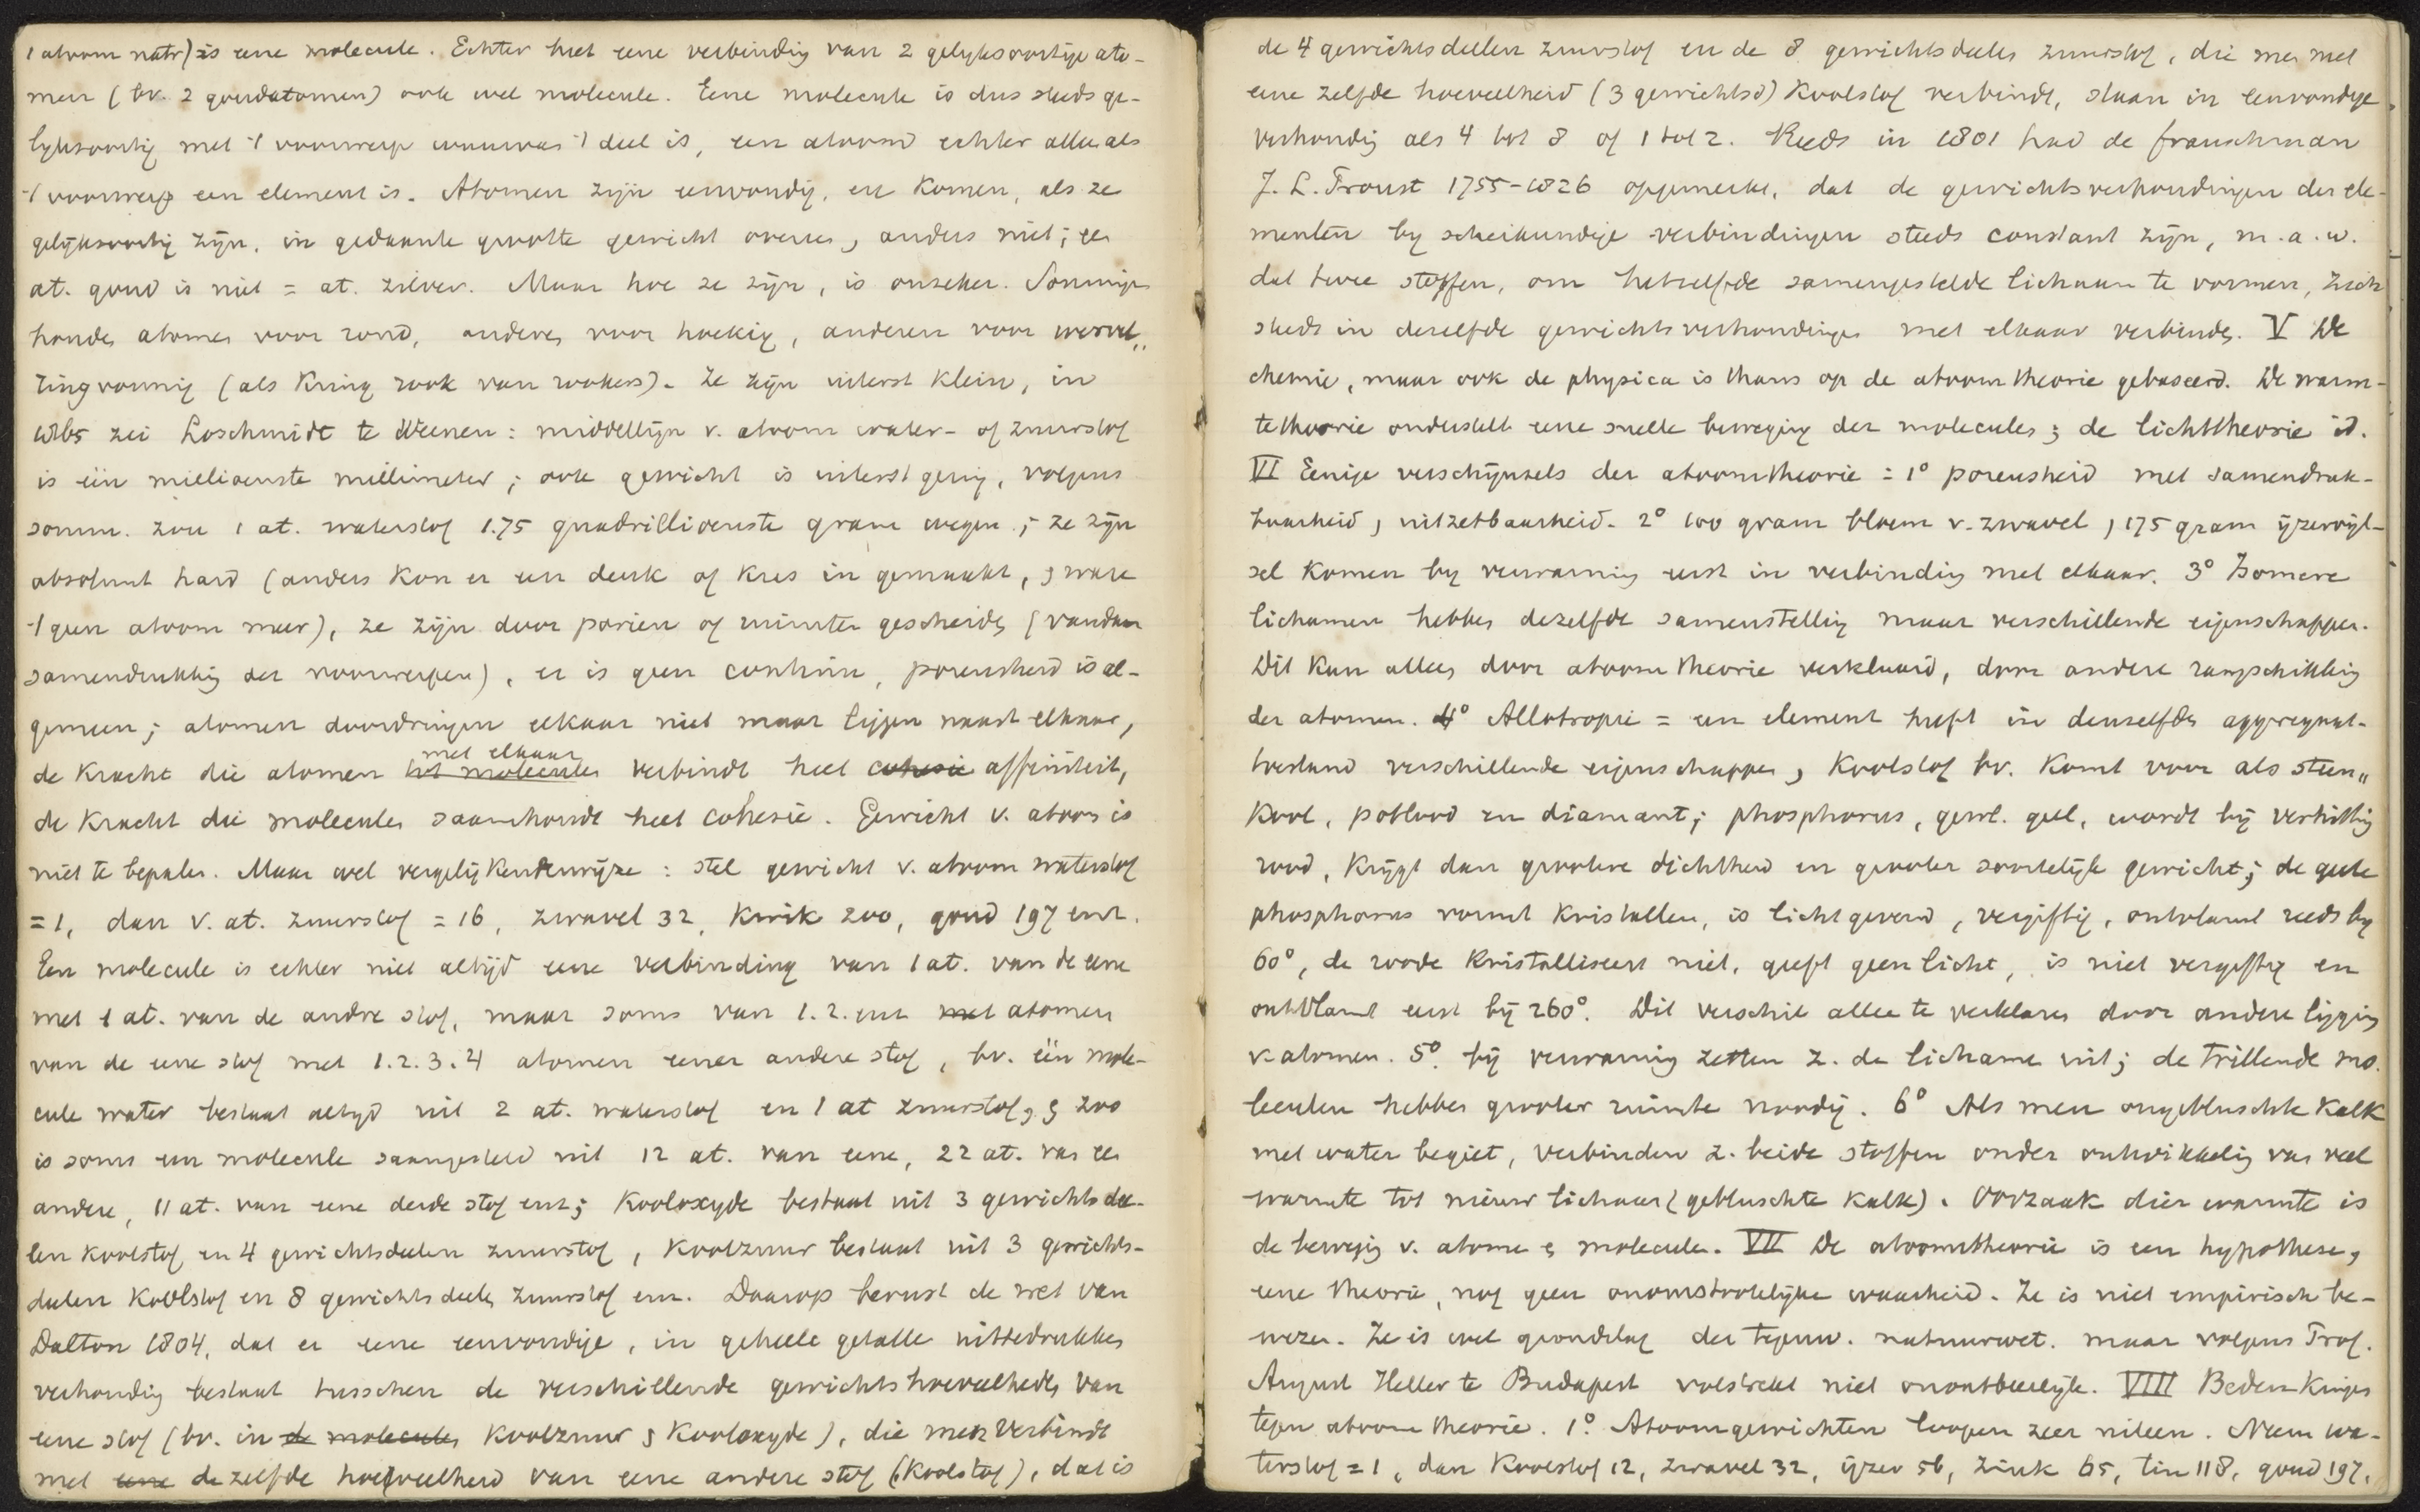 1 atoom natr) is eene molecule. Echter heet eene verbindig van 2 gelyksoortige ato-
men (bv. 2 goudatomen) ook wel molecule. Eene molecule is dus steeds ge-
lyksoortig met 't voorwerp waarvas 't deel is, een atoom echter alleen als
't voorwerp een element is. Atomen zijn eenvoudig, en komen, als ze
gelijksoortig zijn, in gedaante grootte gewicht overeen, anders niet; een
at. goud is niet = at. zilver. Maar hoe ze zijn, is onzeker. Sommige
houden atomen voor rond, anderen voor hoekig, anderen voor wervel„
lingvormig (als Kring rook van rookers). Ze zijn uiterst klein, in
1865 zei Loschmidt te Weenen: middellijn v. atoom water- of zuurstof
is één millioenste millimeter; ook gewicht is uiterst gering, volgens
somm. zou 1 at. waterstof 1.75 quadrillioenste gram wegen; ze zijn
absoluut hard (anders kon er een deuk of kras in gemaakt, en ware
't geen atoom meer), ze zijn door poriën of ruimten gescheiden (vandaar
samendrukking der voorwerpen), er is geen continu, poreusheid is al-
gemeen; atomen doordringen elkaar niet maar liggen naast elkaar,
met elkaar
de kracht die atomen tot moleculen verbindt heet cohesie affiniteit,
de kracht die moleculen saamhoudt heet cohesie. Gewicht v. atoom is
niet te bepalen. Maar wel vergelijkenderwijze: stel gewicht v. atoom waterstof
= 1, dan v. at. zuurstof = 16, zwavel 32, kwik 200, goud 197 enz.
Een molecule is echter niet altijd eene verbinding van 1 at. van de eene
met 1 at. van de andre stof, maar soms van 1. 2. enz met atomen
van de eene stof met 1. 2. 3. 4 atomen eener andere stof, bv. één mole-
cule water bestaat altyd uit 2 at. waterstof en 1 at zuurstof, en zoo
is soms een molecule saamgesteld uit 12 at. van eene, 22 at. van een
andere, 11 at. van eene derde stof enz; Kooloxyde bestaat uit 3 gewichtsdee-
len koolstof en 4 gewichtsdeelen zuurstof, Koolzuur bestaat uit 3 gewichts-
deelen koolstof en 8 gewichtsdeelen zuurstof enz. Daarop berust de wet van
Dalton 1804, dat er eene eenvoudige, in geheele getalle uittedrukken
verhoudig bestaat tusschen de verschillende gewichtshoeveelheden van
eene stof (bv. in de moleculen koolzuur en kooloxyde), die men verbindt
met eene dezelfde hoeveelheid van eene andere stof (koolstof), dat is
de 4 gewichtsdeelen zuurstof en de 8 gewichtsdeelen zuurstof, die men met
eene zelfde hoeveelheid (3 gewichtsd) koolstof verbindt, staan in eenvoudige
verhoudig als 4 tot 8 of 1 tot 2. Reeds in 1801 had de franschman
J. L. Proust 1755-1826 opgemerkt, dat de gewichtsverhoudingen der ele-
menten by scheikundige verbindingen steeds constant zijn, m.a.w.
dat twee stoffen, om hetzelfde samengestelde lichaam te vormen, zich
steeds in dezelfde gewichtsverhoudingen met elkaar verbinden. V De
chemie, maar ook de physica is thans op de atoomtheorie gebaseerd. De warm-
tetheorie onderstelt eene snelle beweging der molecules; de lichttheorie id.
VI Eenige verschijnsels der atoomtheorie: 1° poreusheid met samendruk-
baarheid, uitzetbaarheid. 2° 100 gram bloem v. zwavel, 175 gram ijzervijl-
sel komen by verwarming eerst in verbinding met elkaar. 3° Isomere
lichamen hebben dezelfde samenstelling maar verschillende eigenschappen.
Dit kan alleen door atoomtheorie verklaard, door andere rangschikking
der atomen. 4° Allotropie = een element heeft in denzelfden aggregaat-
toestand verschillende eigenschappen, Koolstof bv. komt voor als steen„
kool, potlood en diamant; phosphorus, gewl. geel, wordt bij verhitting
rood, krijgt dan grootere dichtheid en grooter soortelijk gewicht; de geele
phosphorus vormt kristallen, is lichtgevend, vergiftig, ontvlamt reeds by
60°, de roode kristalliseert niet, geeft geen licht, is niet vergiftig en
ontvlamt eerst bij 260°. Dit verschil alleen te verklaren door andere ligging
v. atomen. 5° bij verwarming zetten z. de lichamen uit; de trillende mo.
leculen hebben grooter ruimte noodig. 6° Als men ongebluschte kalk
met water begiet, verbinden z. beide stoffen onder ontwikkeling van veel
warmte tot nieuw lichaam (gebluschte kalk). Oorzaak dier warmte is
de beweging v. atomen en moleculen. VII De atoomtheorie is een hypothese,
eene theorie, nog geen onomstootelijke waarheid. Ze is niet empirisch be-
wezen. Ze is wel grondslag der tegenw. natuurwet. maar volgens Prof.
August Heller te Budapest volstrekt niet onontbeerlijk. VIII Bedenkingen
tegen atoomtheorie. 1° Atoomgewichten loopen zeer uiteen. Neem wa-
terstof = 1, dan koolstof 12, zwavel 32, ijzer 56, zink 65, tin 118, goud 197,